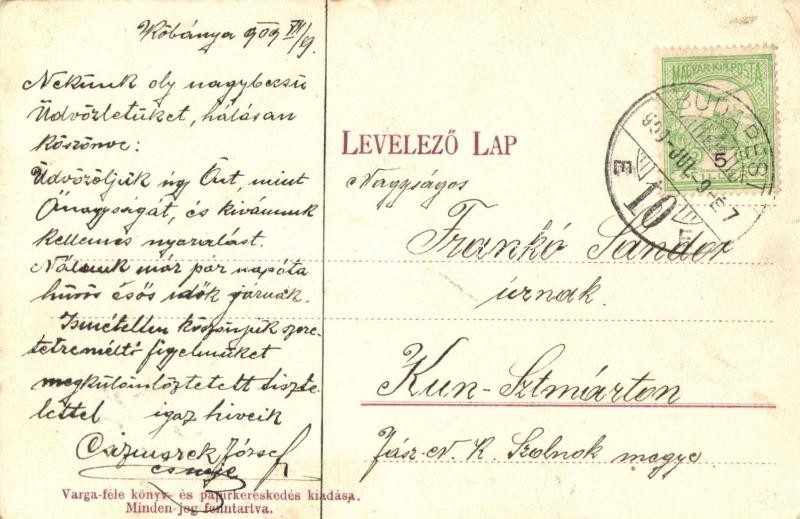 Kőbánya 909 VII/9.
Nekünk oly nagybecsű
Üdvözletüket, hálásan
köszönve:
Üdvözöljük úgy Önt, mint
Őnagyságát, és kivánunk
kellemes nyaralást.
Nálunk már pár napóta
hüvös esős idők járnak.
Ismételten köszönjük szere-
tetreméltó figyelmüket
megkülömböztetett tiszte-
lettel igaz hiveik
József
és neje
Varga-féle könyv- és papírkereskedés kiadása.
Minden jog fenntartva.
LEVELEZŐ LAP
MAGYAR·KIR·POSTA
5
BUDAPEST
909-JUL-9-E7
10
E
Nagyságos
Frankó Sándor
úrnak.
Kun-Sztmárton
Jász-N. K. Szolnok megye